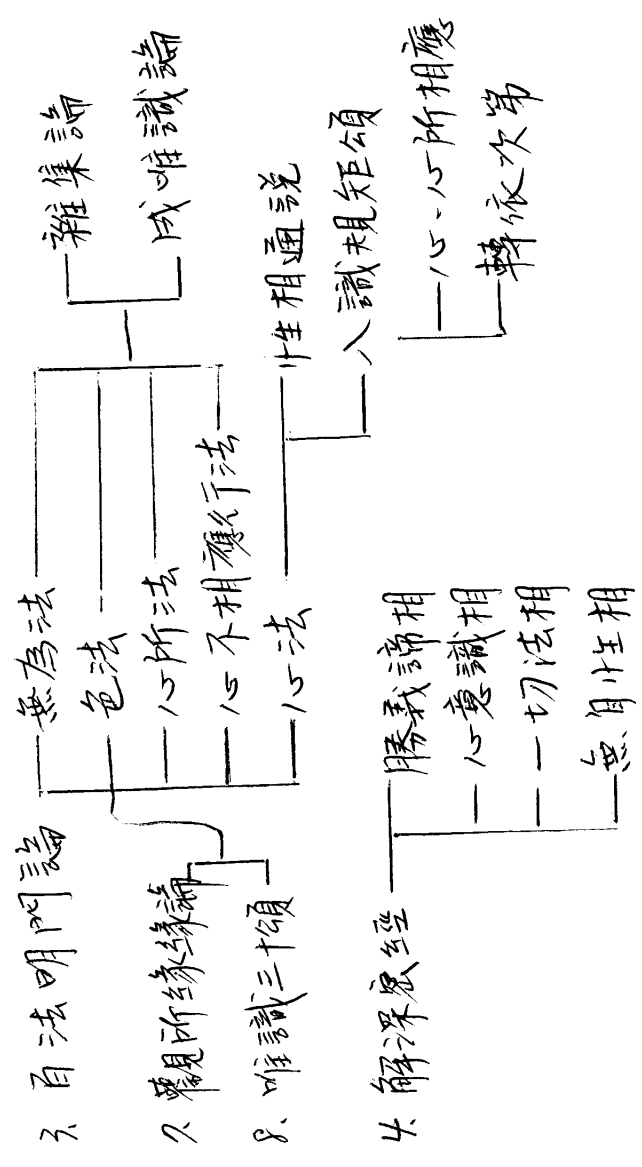 3、百法明門論
無為法
色法
心所法
心不相應行法
心法
雜集論
成唯識論
性相通說
八識規矩頌
心、心所相應
轉依次第
7、觀所緣緣論
8、唯識三十頌
4、解深密經
勝義諦相
心意識相
一切法相
無自性相